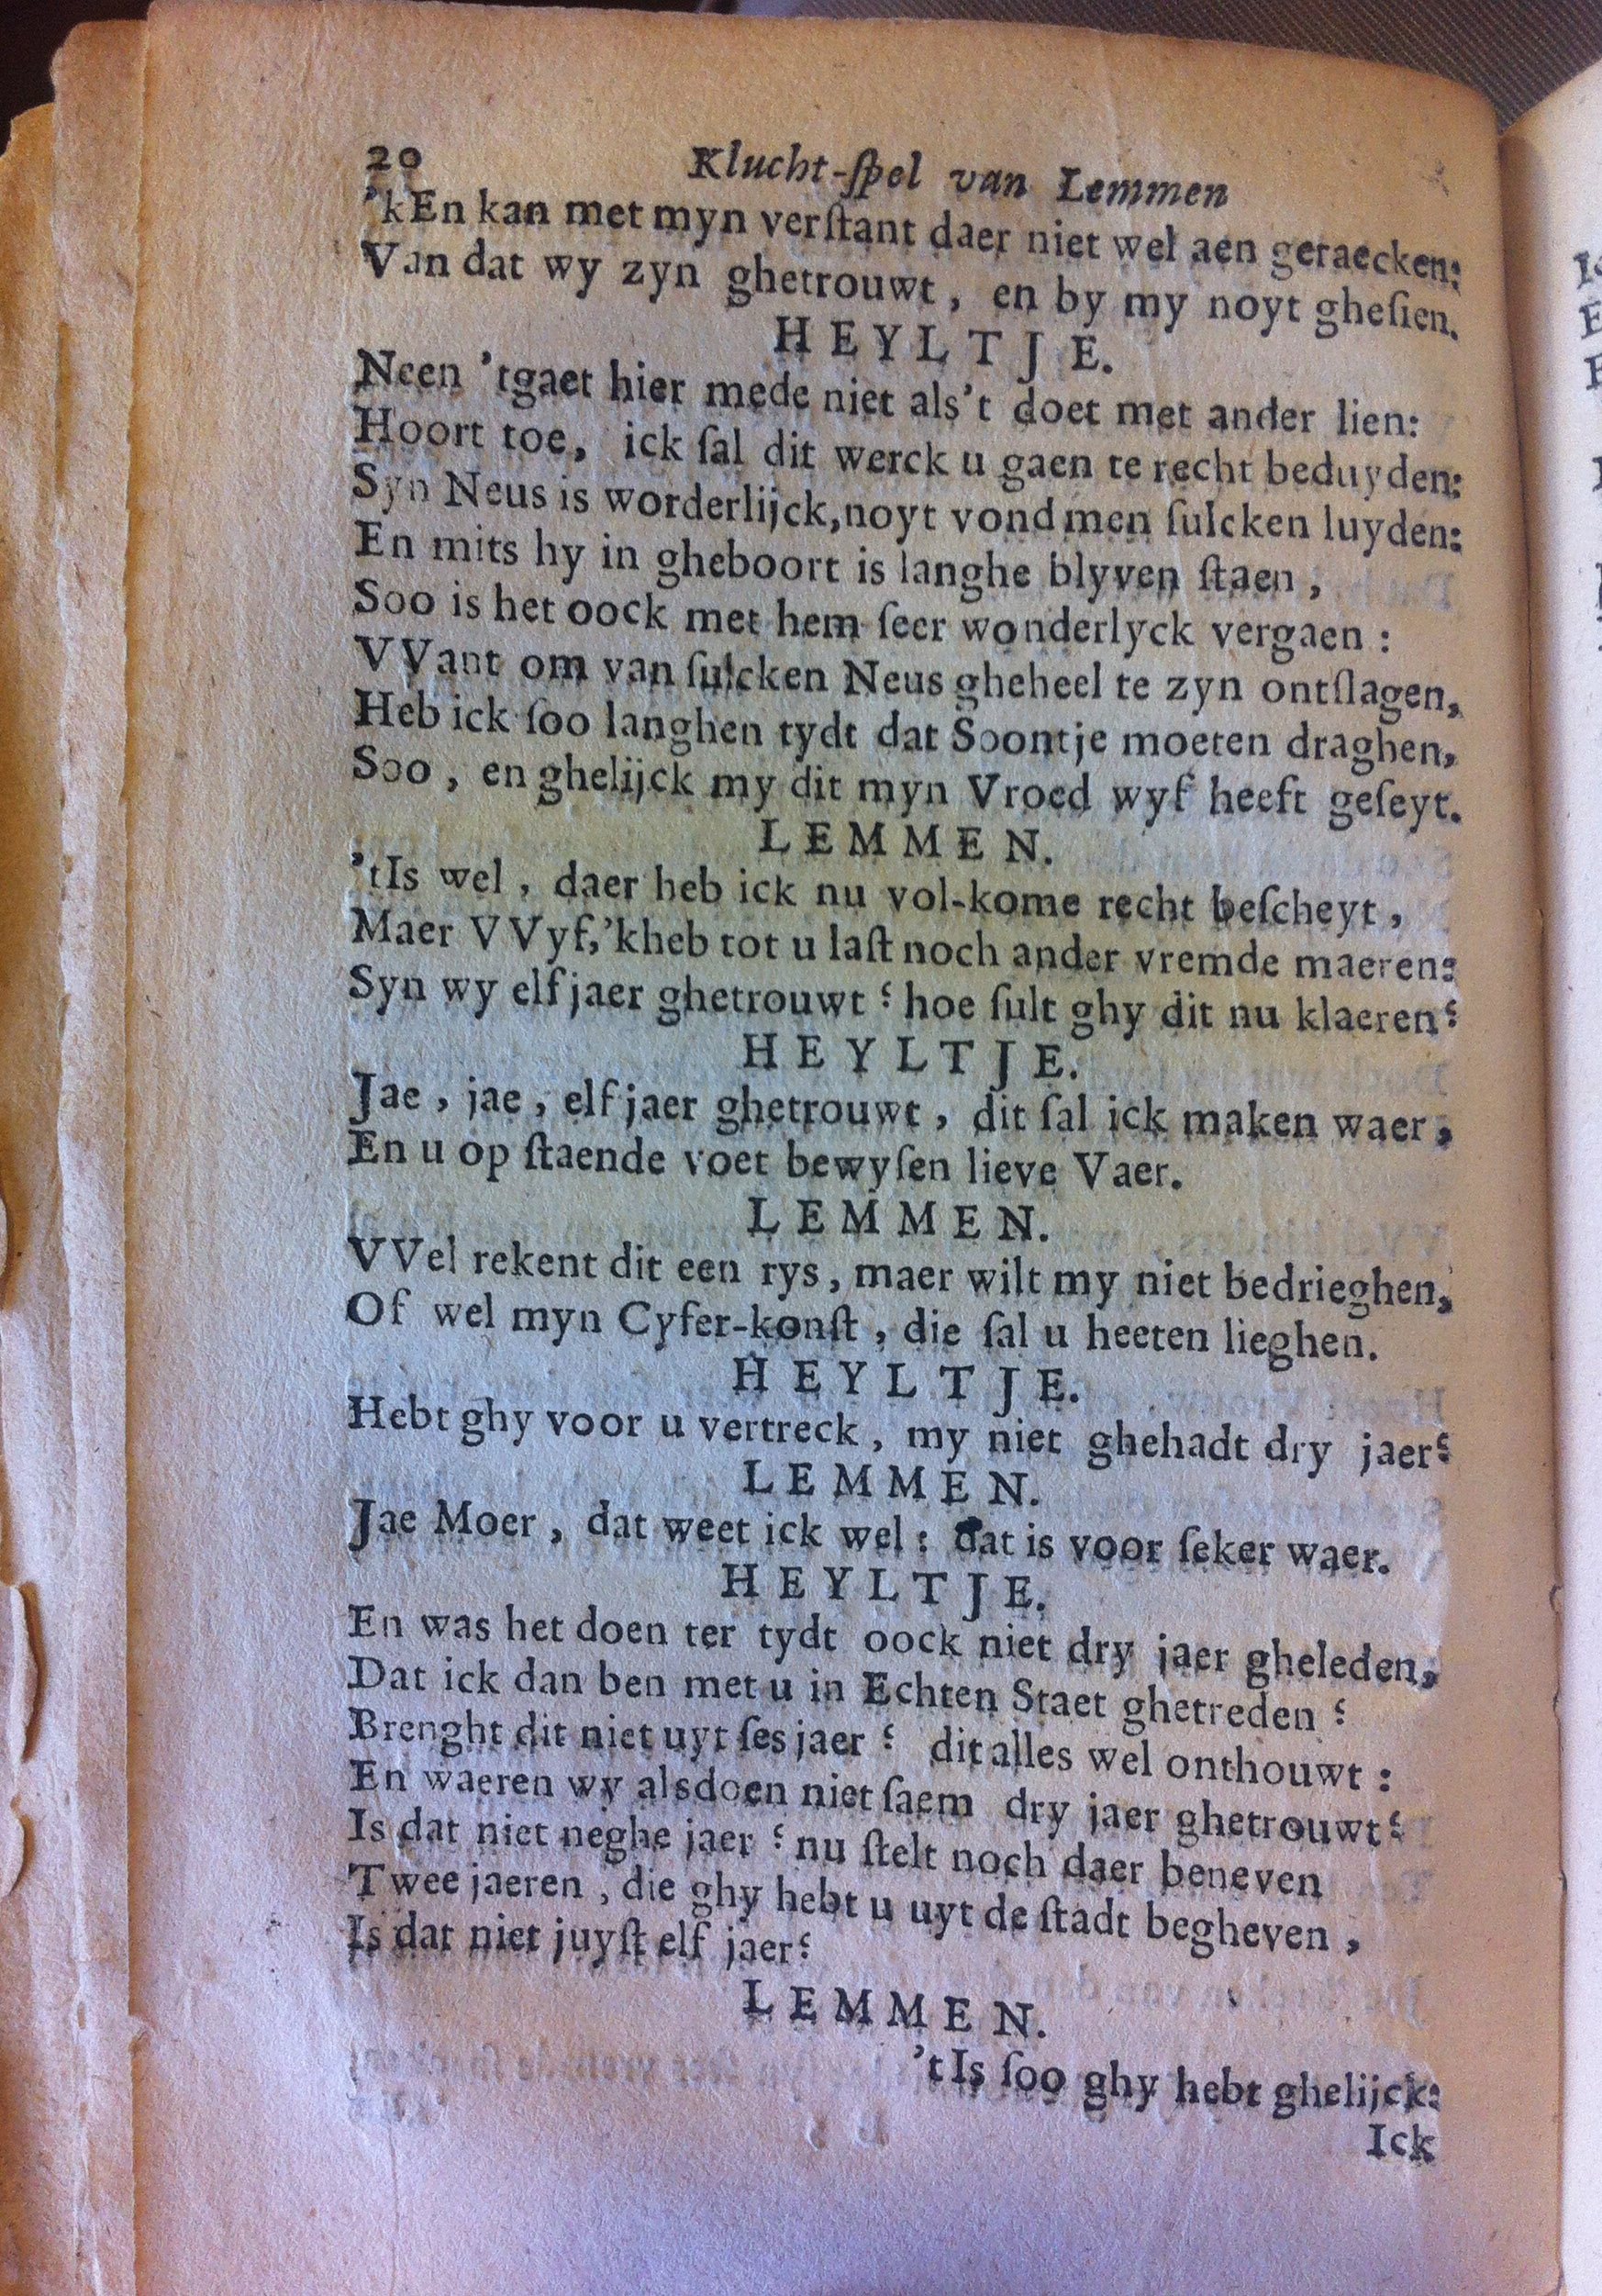 20 Klucht-ſpel van Lemmen
'kEn kan met myn verſtant daer niet wel aen geraecken:
Van dat wy zyn ghetrouwt, en by my noyt gheſien.
HEYLTJE.
Neen 'tgaet hier mede niet als't doet met ander lien:
Hoort toe, ick ſal dit werck u gaen te recht beduyden:
Syn Neus is worderlijck, noyt vond men ſulcken luyden:
En mits hy in gheboort is langhe blyven ſtaen,
Soo is het oock met hem ſeer wonderlyck vergaen:
VVant om van ſulcken Neus gheheel te zyn ontſlagen,
Heb ick ſoo langhen tydt dat Soontje moeten draghen,
Soo, en ghelijck my dit myn Vroed wyf heeft geſeyt.
LEMMEN.
'tIs wel, daer heb ick nu vol-kome recht beſcheyt,
Maer VVyf,'kheb tot u laſt noch ander vremde maeren:
Syn wy elf jaer ghetrouwt? hoe ſult ghy dit nu klaeren?
HEYLTJE.
Jae, jae, elf jaer ghetrouwt, dit ſal ick maken waer,
En u op ſtaende voet bewyſen lieve Vaer.
LEMMEN.
VVel rekent dit een rys, maer wilt my niet bedrieghen,
Of wel myn Cyfer-konſt, die ſal u heeten lieghen.
HEYLTJE.
Hebt ghy voor u vertreck, my niet ghehadt dry jaer?
LEMMEN.
Jae Moer, dat weet ick wel: dat is voor ſeker waer.
HEYLTJE.
En was het doen ter tydt oock niet dry jaer gheleden,
Dat ick dan ben met u in Echten Staet ghetreden?
Brenght dit niet uyt ſes jaer? dit alles wel onthouwt:
En waeren wy alsdoen niet ſaem dry jaer ghetrouwt?
Is dat niet neghe jaer? nu ſtelt noch daer beneven
Twee jaeren, die ghy hebt u uyt de ſtadt begheven,
Is dat niet juyſt elf jaer?
LEMMEN.
'tIs ſoo ghy hebt ghelijck:
Ick